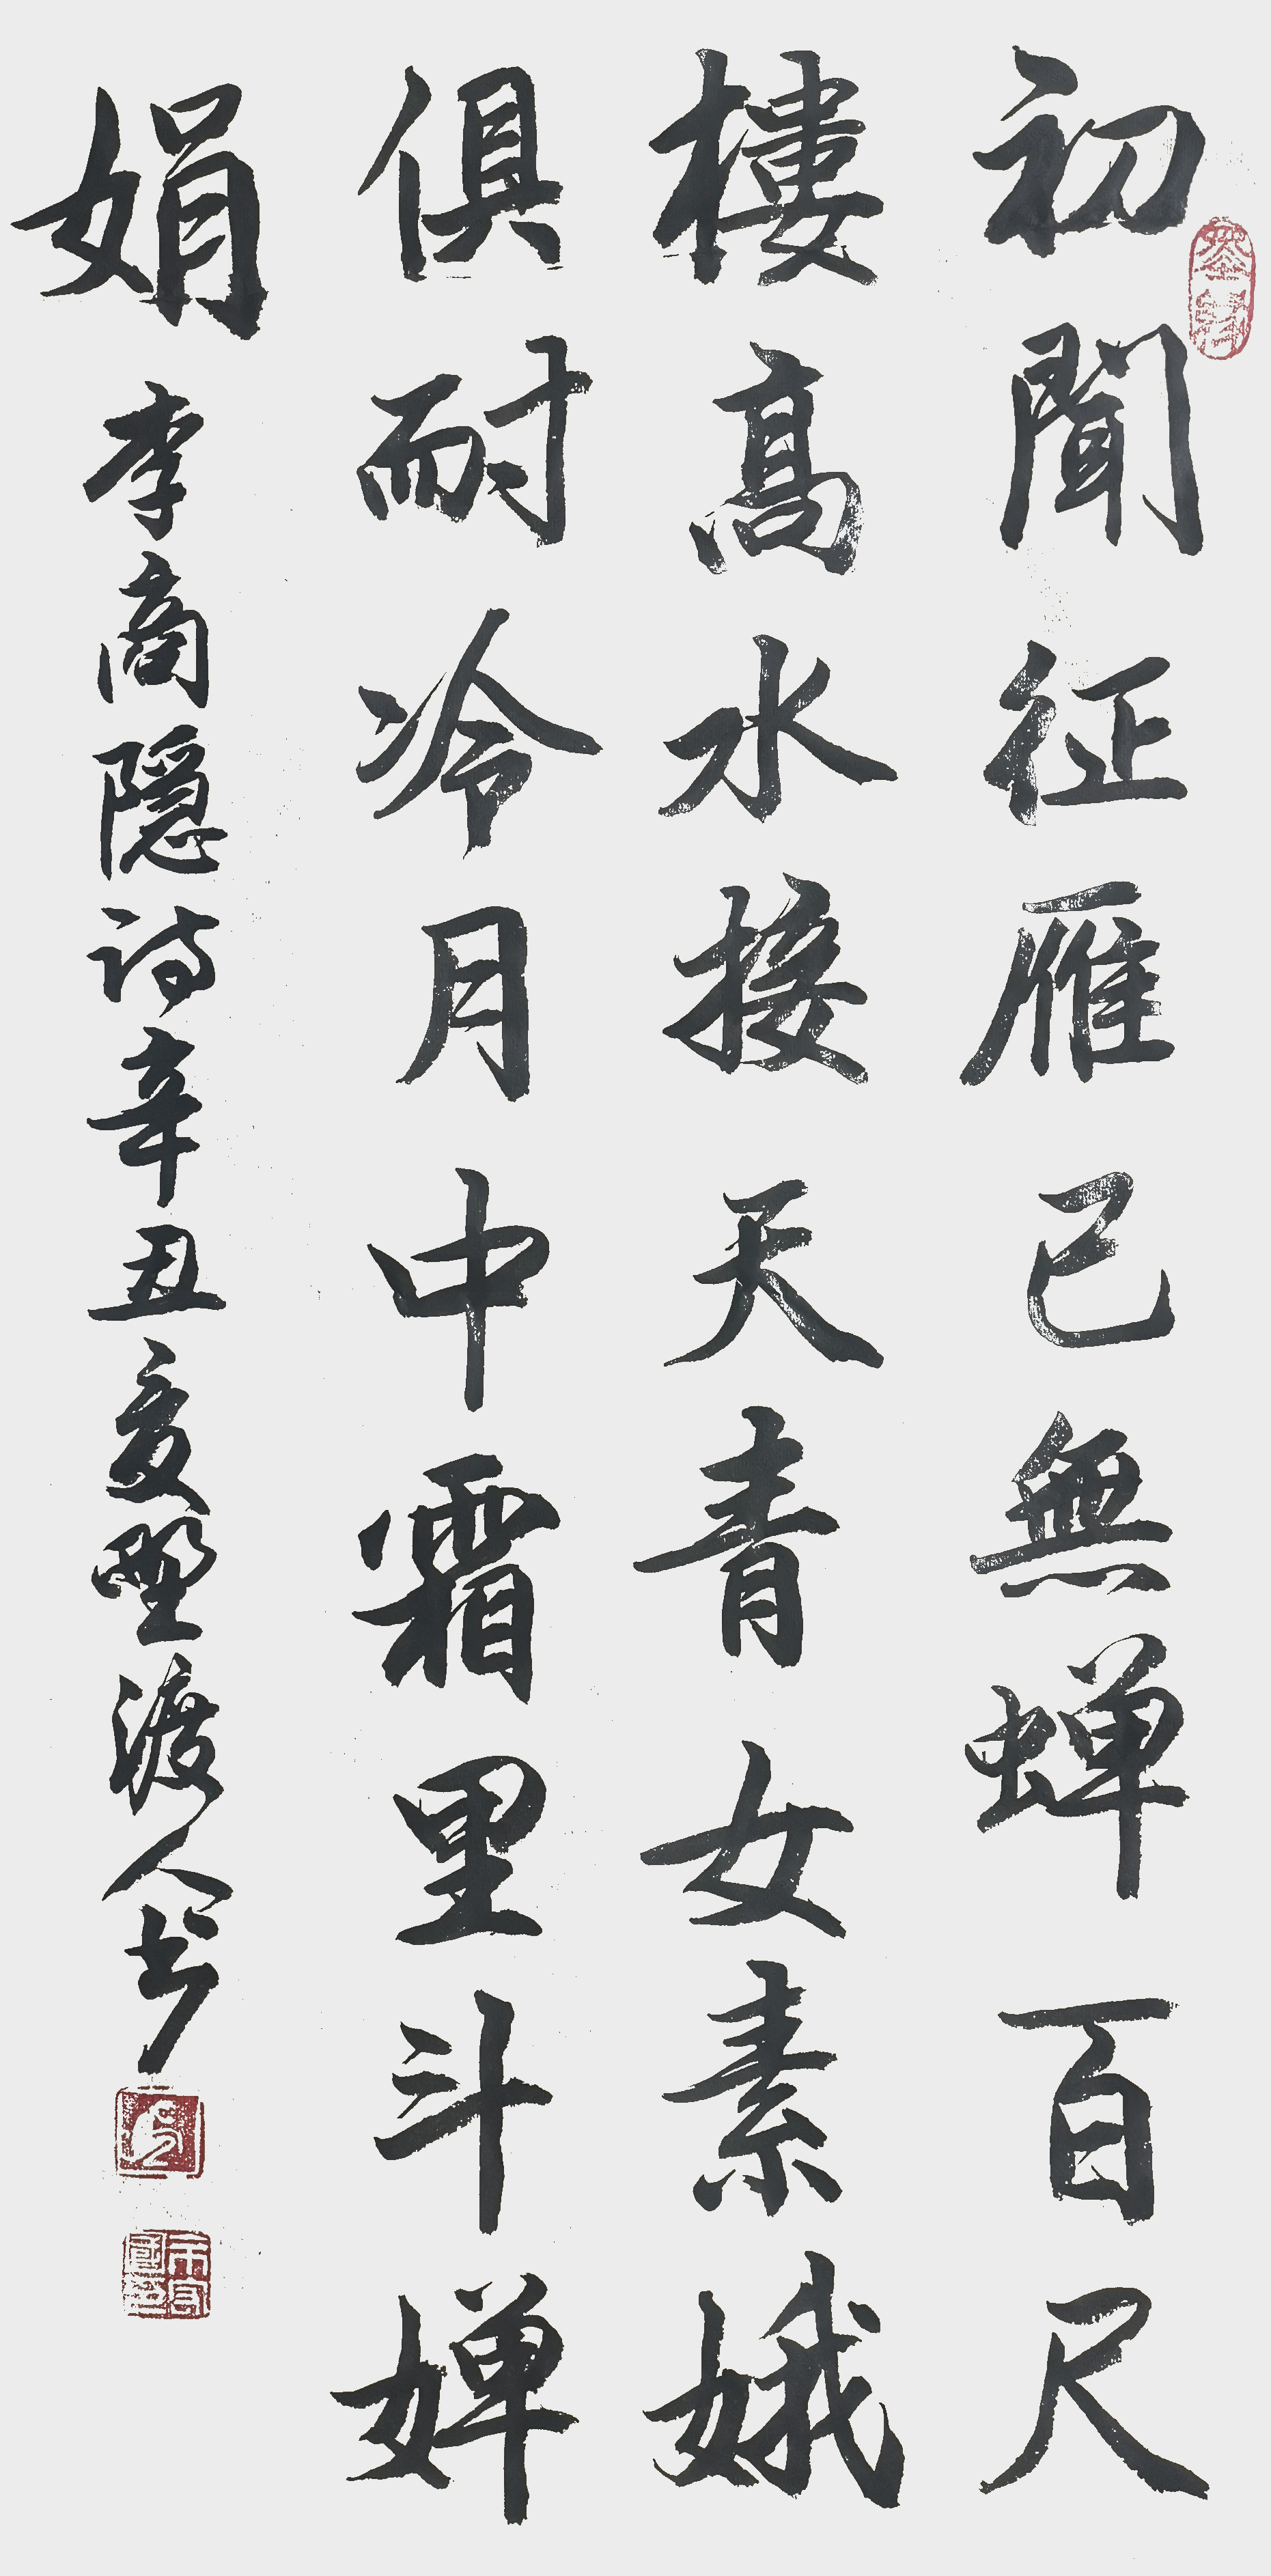 初聞征雁已無蝉百尺
樓高水接天青女素娥
俱耐冷月中霜里斗婵
娟
李商隱诗辛丑夏野渡人书